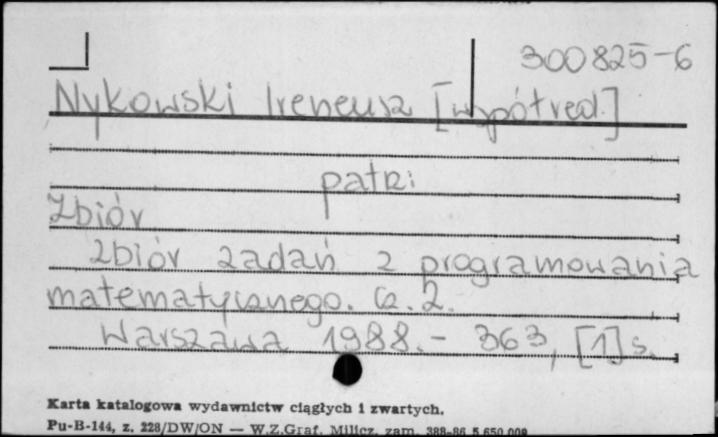 300825-6
Nykowski Ireneusz [współred.]
patrz:
Zbiór
Zbiór zadań z programowania
matematycznego. Cz. 2.
Warszawa 1988.- 363, [1] s.
Karta katalogowa wydawnictw ciągłych i zwartych.
Pu-B-144, z. 228/DW/ON — W.Z.Graf. Milicz, zam. 388-86 5.650.000